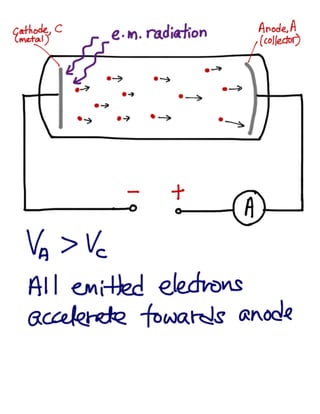 Cathode, C
(metal)
e.m. radiation
Anode, A
(collector)
− +
A
V_A > V_C
All emitted electrons
accelerate towards anode